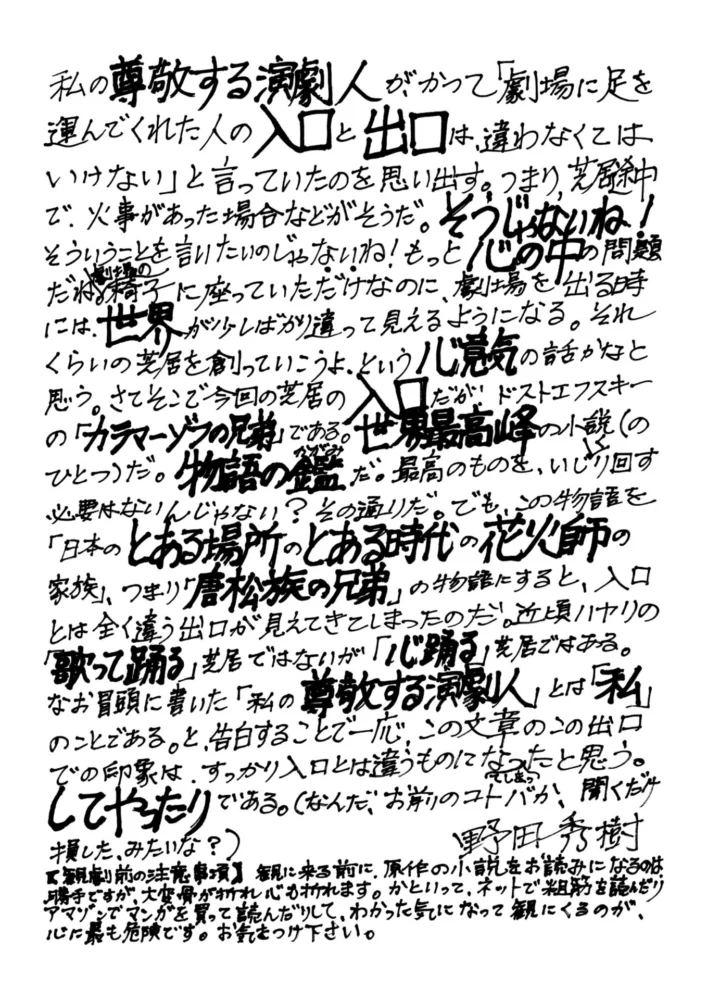 私の尊敬する演劇人が、かつて「劇場に足を
運んでくれた人の入口と出口は、違わなくては
いけない」と言っていたのを思い出す。つまり、芝居途中
で、火事があった場合などがそうだ。そうじゃないね!
そういうことを言いたいのじゃないね!もっと心の中の問題
だね。劇場の椅子に座っていただけなのに、劇場を出る時
には、世界が少しばかり違って見えるようになる。それ
くらいの芝居を創っていこうよ、という心意気の話かなと
思う。さてそこで今回の芝居の入口だが、ドストエフスキー
の「カラマーゾフの兄弟」である。世界最高峰の小説(の
ひとつ)だ。物語の鑑かがみだ。最高のものを、いじくり回す
必要はないんじゃない?その通りだ。でも、この物語を
「日本のとある場所のとある時代の花火師の
家族」、つまり「唐松族の兄弟」の物語にすると、入口
とは全く違う出口が見えてきてしまったのだ。近頃ハヤリの
「歌って踊る」芝居ではないが「心踊る」芝居ではある。
なお冒頭に書いた「私の尊敬する演劇人」とは「私」
のことである。と、告白することで一応、この文章のこの出口
での印象は、すっかり入口とは違うものになってしまったと思う。
してやったりである。(なんだ、お前のコトバか、聞くだけ
損した、みたいな?)
野田秀樹
【観劇前の注意事項】観に来る前に、原作の小説をお読みになるのは
勝手ですが、大変骨が折れ心も折れます。かといって、ネットで粗筋を読んだり
アマゾンでマンガを買って読んだりして、わかった気になって観にくるのが、
心に最も危険です。お気をつけ下さい。